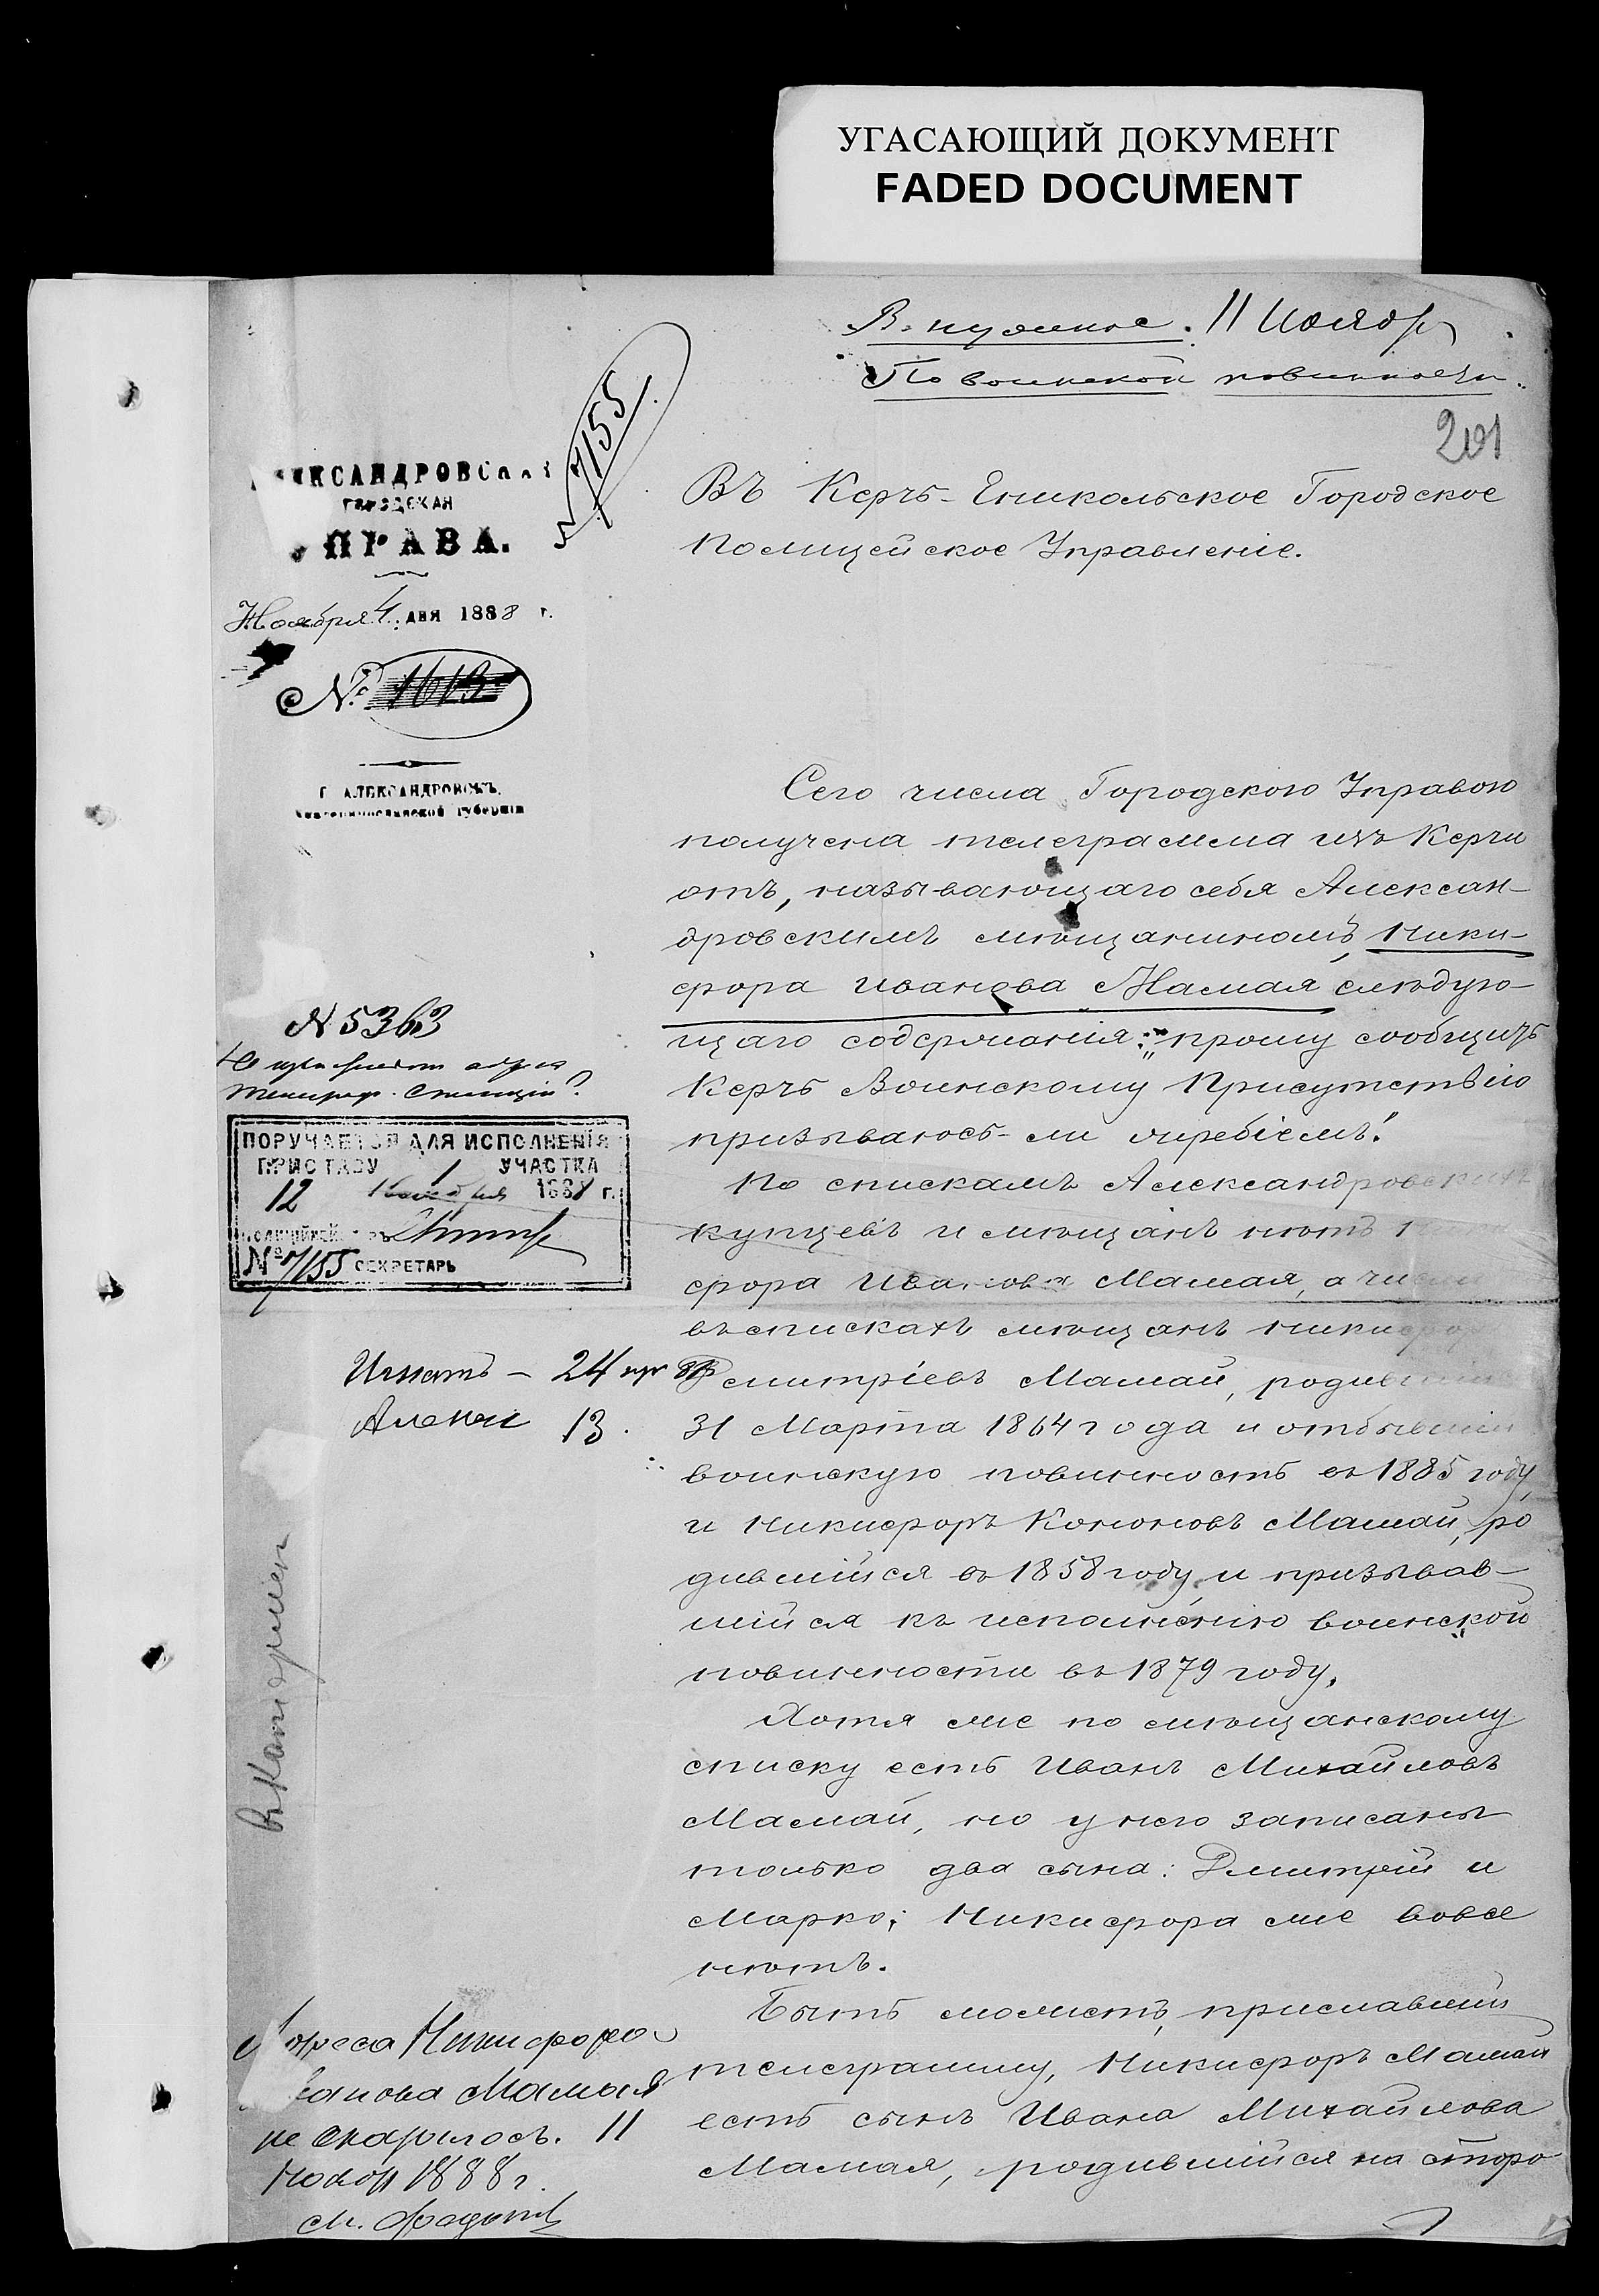 УГАСАЮЩИЙ ДОКУМЕНТ
FADED DOCUMENT
11 Ноябр
По воинской повинности.
201
№ 7155
АЛЕКСАНДРОВСКАЯ
ГОРОДСКАЯ
УПРАВА.
Ноября 4 дня 1888 г.
№ 1613
Г. АЛЕКСАНДРОВСКЪ,
Екатеринославской губерніи
Въ Керчь-Еникольское Городское
Полицейское Управленіе.
Сего числа Городскою Управою
получена телеграмма изъ Керчи
отъ, называющаго себя Алексан-
дровскимъ мѣщаниномъ, Ники-
фора Иванова Мамая слѣдую-
щаго содержанія: „прошу сообщить
Керчь Воинскому Присутствію
призываюсь-ли жребіемъ."
По спискамъ Александровскихъ
купцевъ и мѣщанъ нѣтъ Ники
фора Иванова Мамая, а
въ спискахъ мѣщанъ Никифор
Дмитріевъ Мамай, родившійся
31 Марта 1864 года и отбывшій
воинскую повинность въ 1885 году,
и Никифоръ Кононовъ Мамай, ро
дившійся въ 1858 году и призывав-
шійся къ исполненію воинской
повинности въ 1879 году.
Хотя же по мѣщанскому
списку есть Иванъ Михайловъ
Мамай, но у него записаны
только два сына: Дмитрій и
Марко; Никифора же вовсе
нѣтъ.
Быть можетъ, приславшій
телеграмму, Никифоръ Мамай
есть сынъ Ивана Михайлова
Мамая, родившійся на сторо
№ 5363
ПОРУЧАЕТСЯ ДЛЯ ИСПОЛНЕНІЯ
ПРИСТАВУ 1 УЧАСТКА
12 Ноября 1888 г.
Полиціймейстеръ
№ 7155 СЕКРЕТАРЬ
Игнатъ – 24
13.
Адреса Никифора
Иванова Мамая
не оказалось. 11
Нояб 1888 г.